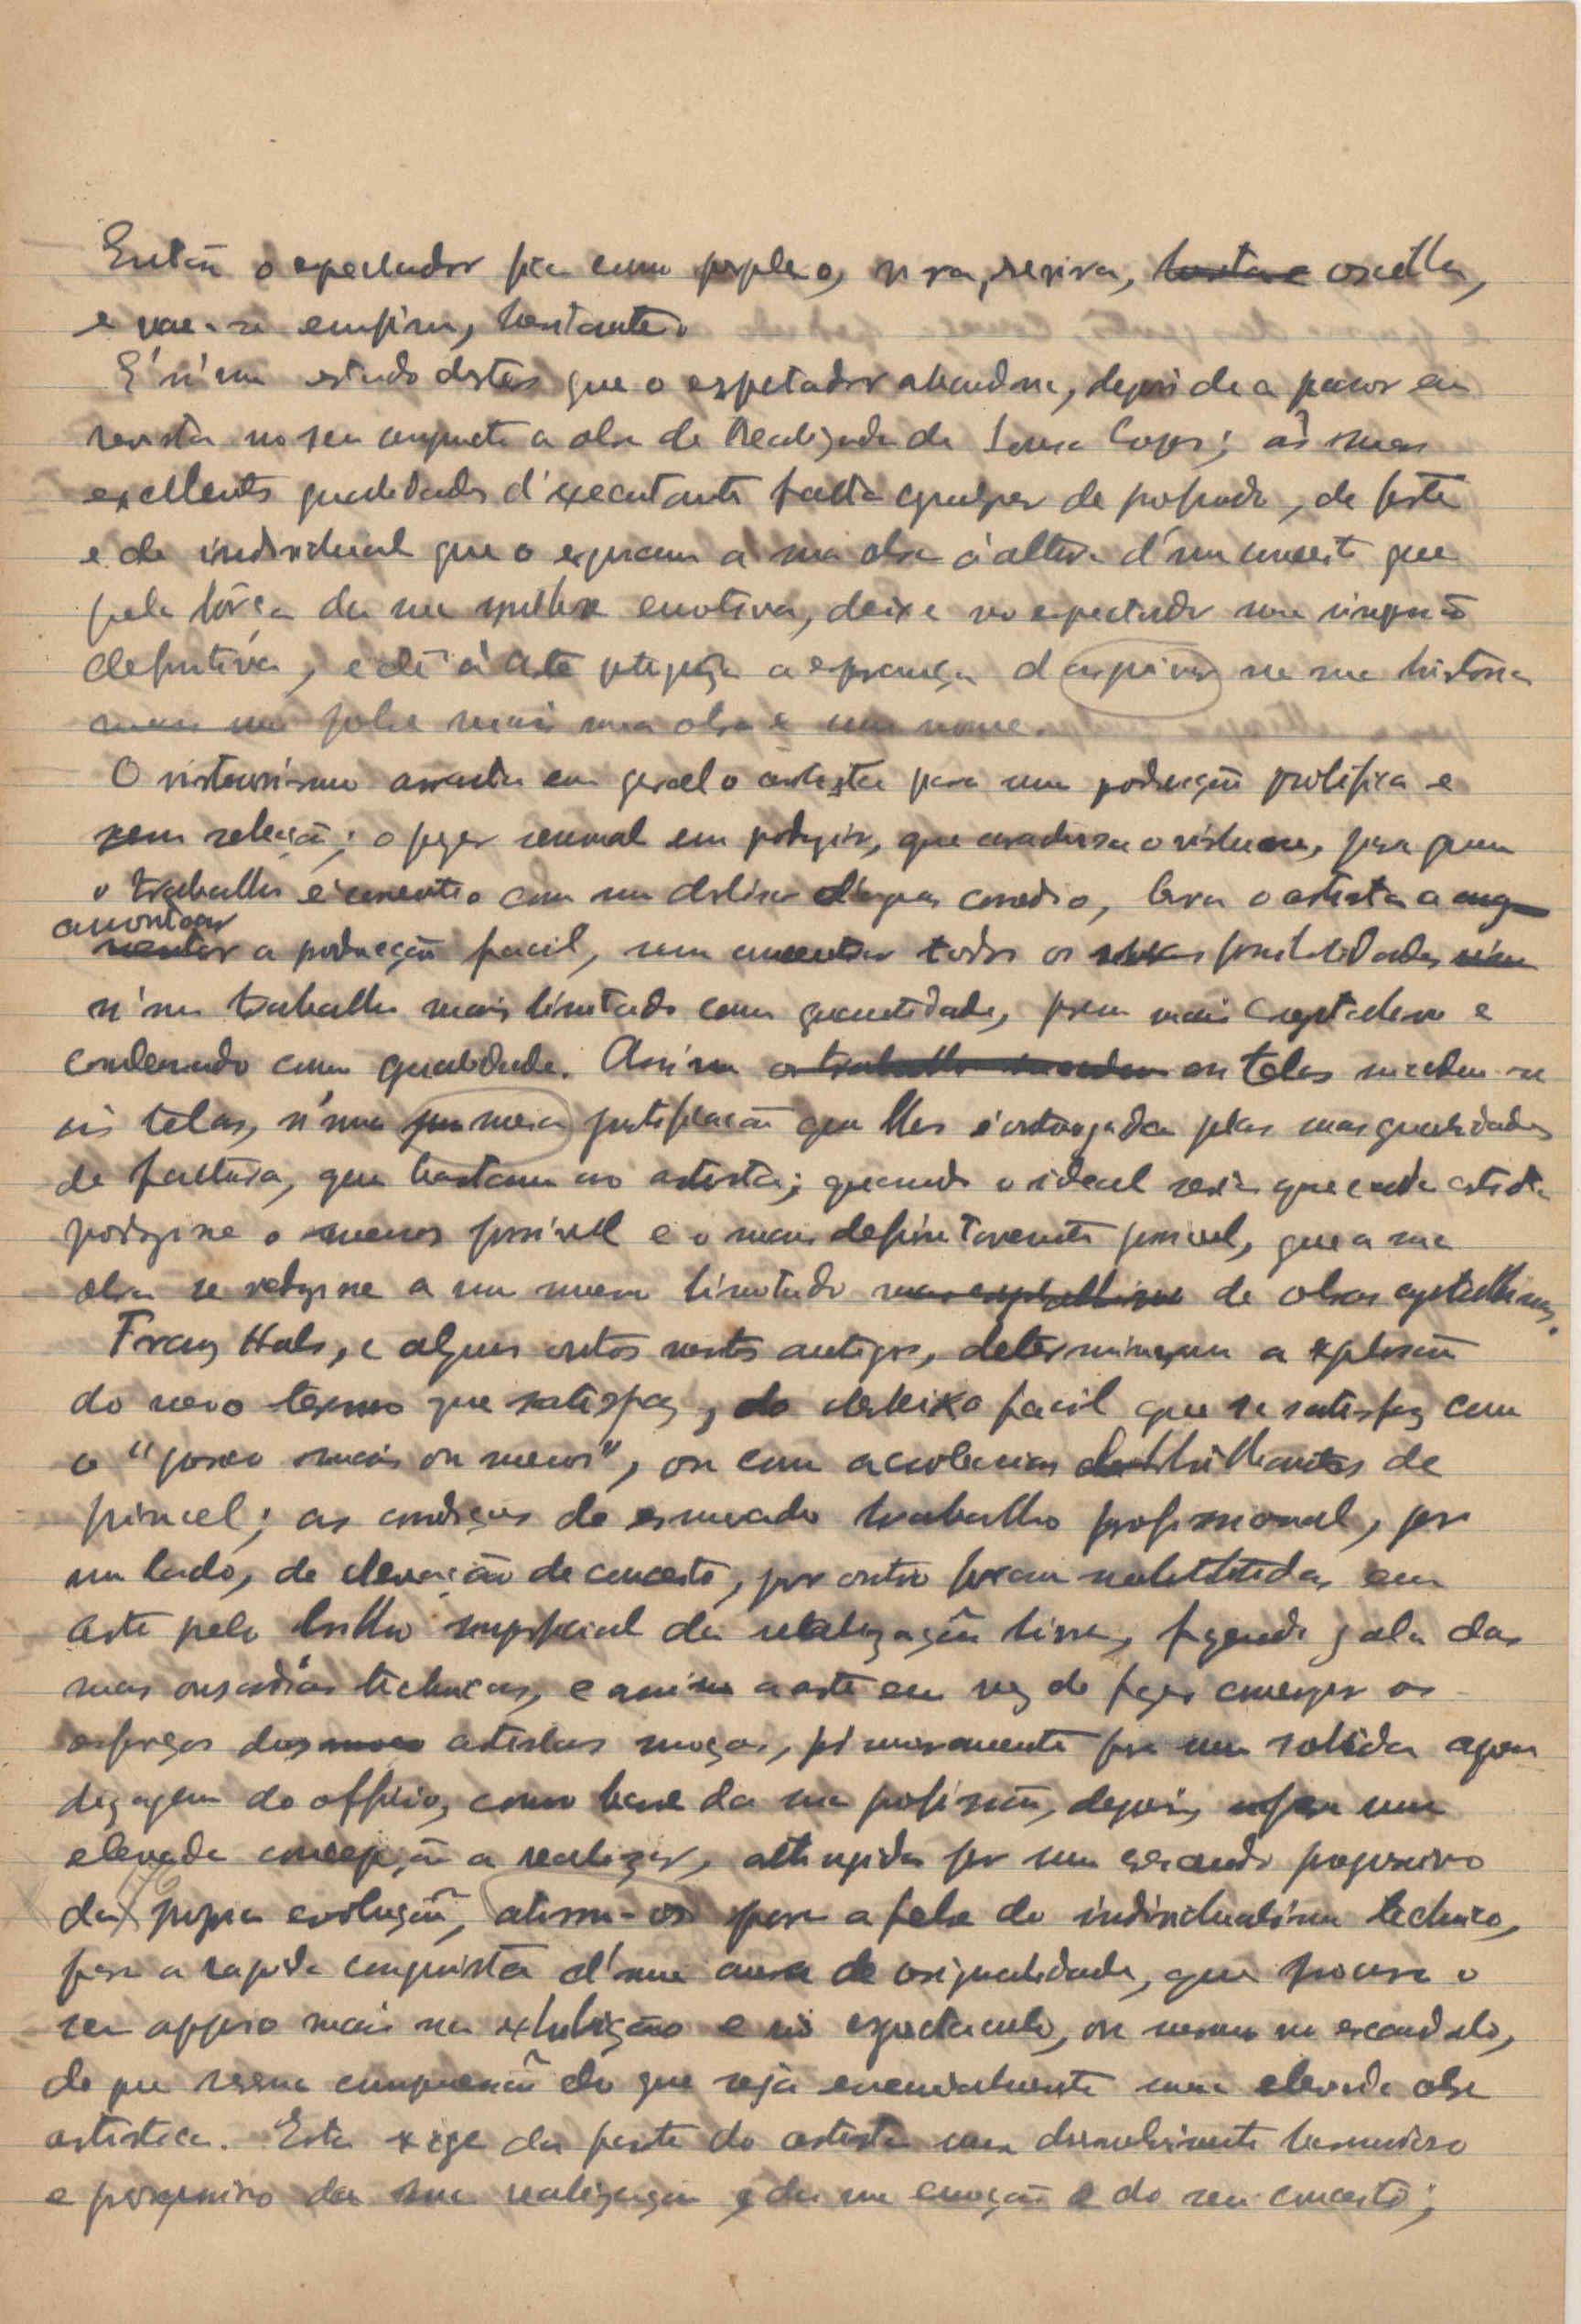 Então o espectador fica como perplexo, vira, revira, oscilla,
e vae-se emfim, hesitante.
É n'um estado destes que o espectador abandona, depois de a passar em
revista no seu conjuncto a obra de Realizada de Sousa Lopes; ás suas
excellentes qualidades d'executante falta de profundo, de forte
e de individual que o a sua obra á altura d'um conceito que
pela fôrça da sua emotiva, deixe no espectador uma impressão
definitiva, e dê á arte portugueza a esperança d na sua historia
mais uma obra e um nome.
O virtuosismo arrasta em geral o artista para uma producção prolifica e
sem selecção; o prazer sensual em produzir, que caracterisa o virtuose, para quem
o trabalho é corrente como um deslisar d'agua, leva o artista a
amontoar a producção facil, sem concentrar todas as suas possibilidades
n'um trabalho mais limitado como quantidade, porem mais e
condensado como qualidade. Assim as telas succedem-se
ás telas, n'uma justificação que lhes é outorgada pelas suas qualidades
de factura, que bastam ao artista; quando o ideal seria que cada artista
produzisse o menos possivel e o mais definitivamente possivel, que a sua
obra se reduzisse a um numero limitado de obras
Franz Hals, e alguns outros mestres antigos, determinaram a explosão
do novo que satisfaz, do desleixo facil que se satisfaz com
o "pouco mais ou menos", ou com acrobacias brilhantes de
pincel; as condições de esmerado trabalho profissional, por
um lado, de elevação de conceito, por outro foram substituidas em
arte pelo brilho superficial da realização livre, fazendo gala das
suas ousadias technicas, e assim a arte em vez de fazer convergir os
esforços dos artistas moços, primeiramente para uma solida apren
dizagem do officio, como base da sua profissão, depois, para uma
elevada concepção a realizar, attingida por um progressivo
da propria evolução, atirou-os para a do individualismo technico,
para a rapida conquista d'uma aura de originalidade, que procura o
seu appoio mais na exhibição e no espectaculo, ou mesmo no escandalo,
do que n'essa comprehensão do que seja essencialmente uma elevada obra
artistica. Esta exige da parte do artista um desenvolvimento harmonioso
e progressivo da sua realização e da sua emoção e do seu conceito;